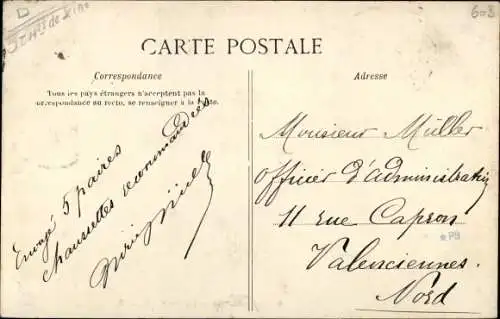 603
CARTE POSTALE
Correspondance
Tous les pays étrangers n'acceptent pas la
correspondance au recto, se renseigner à la Poste.
Envoyé 5 paires
chaussettes recommandées
Adresse
Monsieur Müller
Officier d'administration
11 rue Capron
Valenciennes.
Nord
*P9